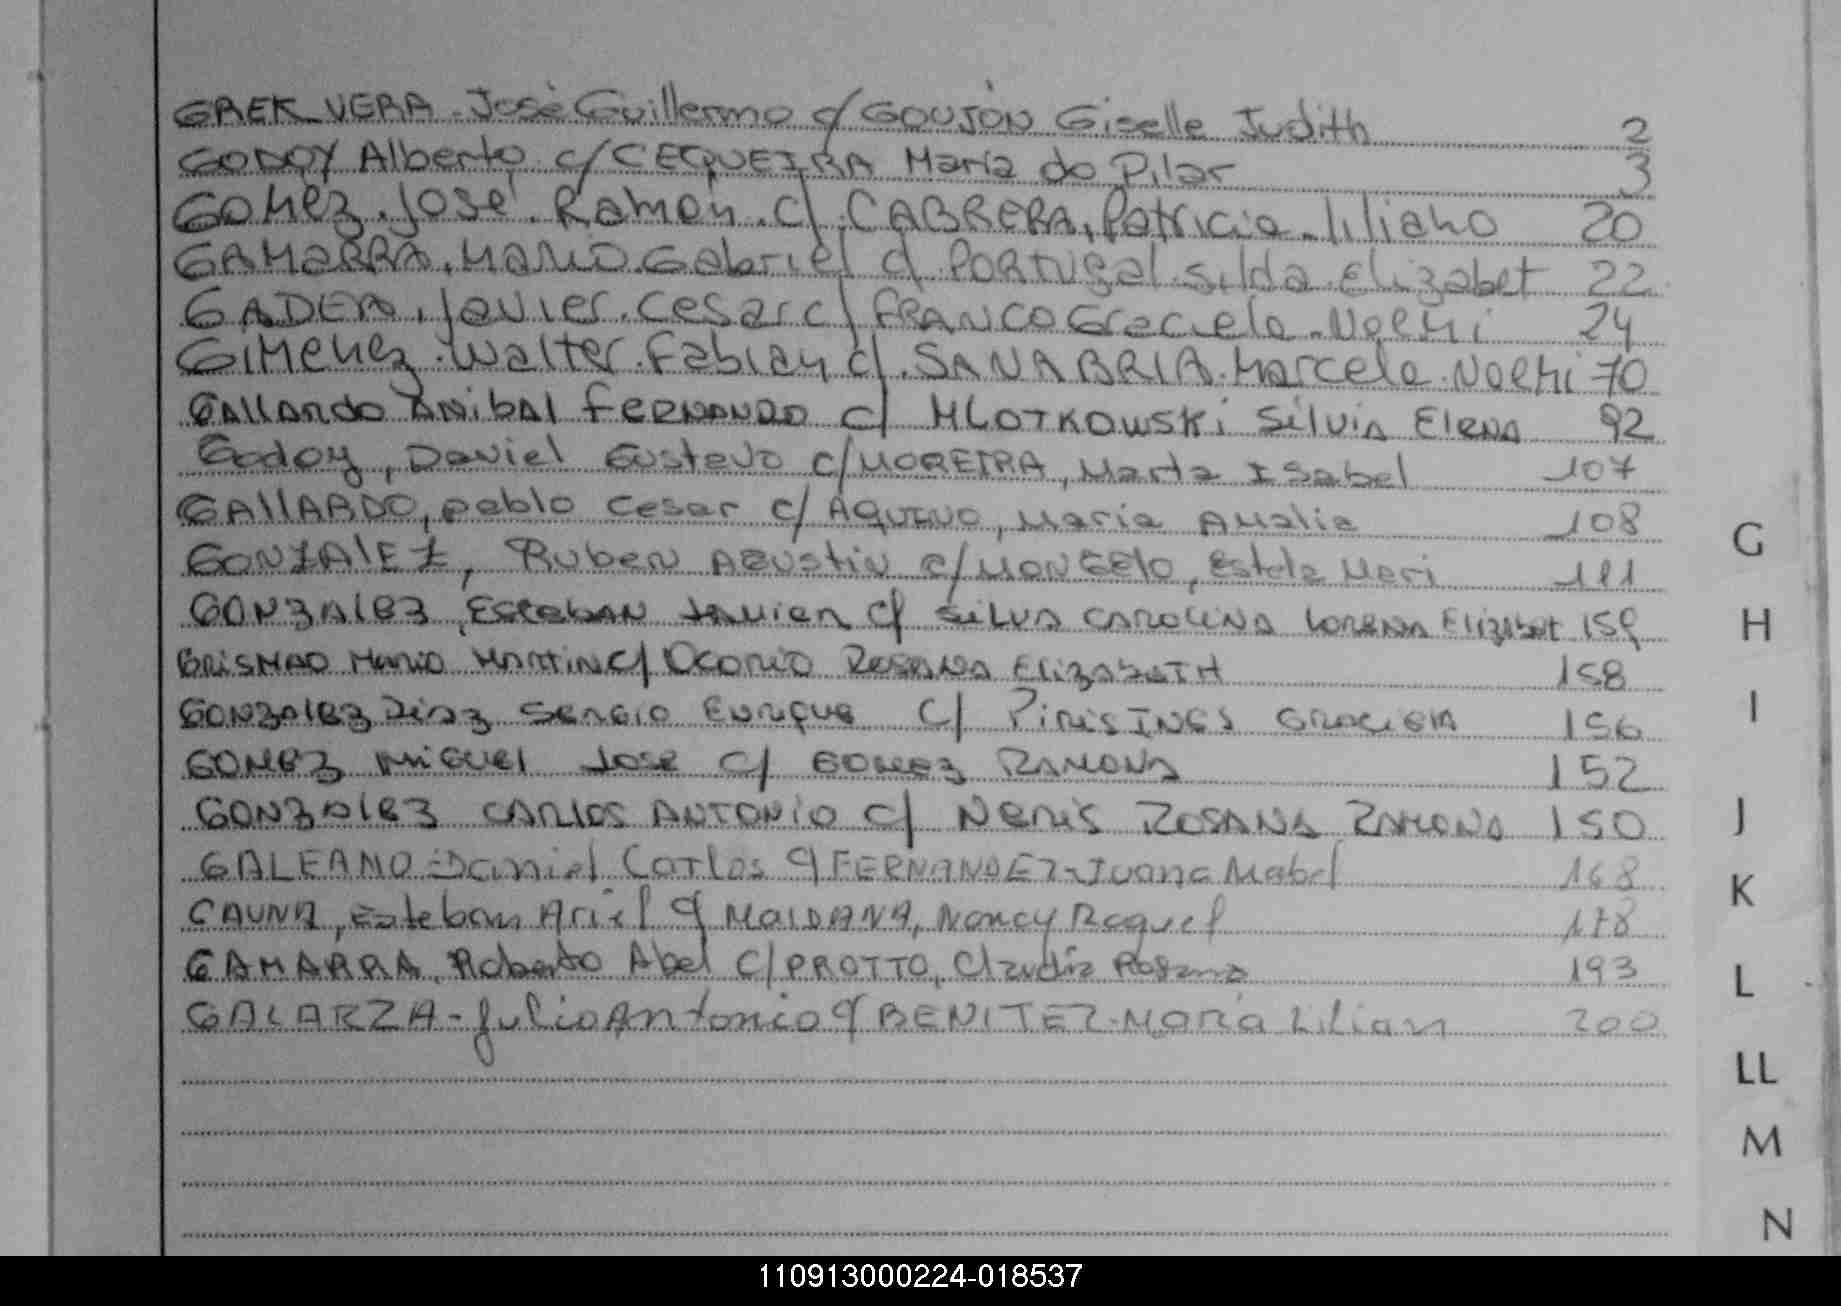 GAEK VERA. José Guillermo c/ GOUJON Giselle Judith 2
GODOY Alberto c/ CEQUEIRA Maria do Pilar 3
GOMEZ. José. Ramón. c/. CABRERA, Patricia. liliana 20
GAMARRA, MARIO. Gabriel c/. PORTUGAL. Silda. Elizabet 22
GADEA, Javier. Cesar c/ FRANCO Graciela. Noemi 24
GIMENEZ. Walter. Fabian c/. SANABRIA. Marcela. Noemi 70
GALLARDO ANIBAL FERNANDO c/ MLOTKOWSKI SILVIA ELENA 92
Godoy, Daniel Gustavo c/ MOREIRA, Marta Isabel 107
GALLARDO, pablo Cesar c/ AQUINO, Maria Amalia 108
GONZALEZ, RUBEN AGUSTIN c/ MONGELO, Estela Mari 111
GONZALEZ, ESTEBAN JAVIER c/ SILVA CAROLINA LORENA ELIZABET 159
MARIO MARTIN c/ OCORIO ROSANA ELIZABETH 158
GONZALEZ DIAZ SERGIO ENRIQUE c/ PIRIS INES GRACIELA 156
GOMEZ MIGUEL JOSE c/ GOMEZ RAMONA 152
GONZALEZ CARLOS ANTONIO c/ NERIS ROSANA RAMONA 150
GALEANO-Daniel Carlos c/ FERNANDEZ-Juana Mabel 168
GAUNA, Esteban Ariel c/ MALDANA, Nancy Raquel 178
GAMARRA, Roberto Abel c/ PROTTO, Claudia Rosana 193
GALARZA-Julio Antonio c/ BENITEZ-Maria Lilian 200
G
H
I
J
K
L
LL
M
N
110913000224-018537